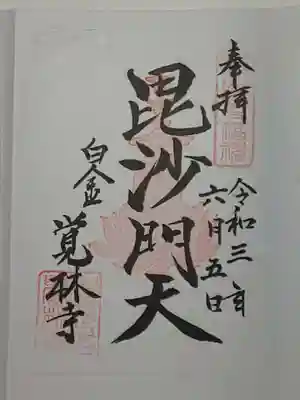 奉拝
令和三年
六月五日
毘沙門天
白金
覚林寺